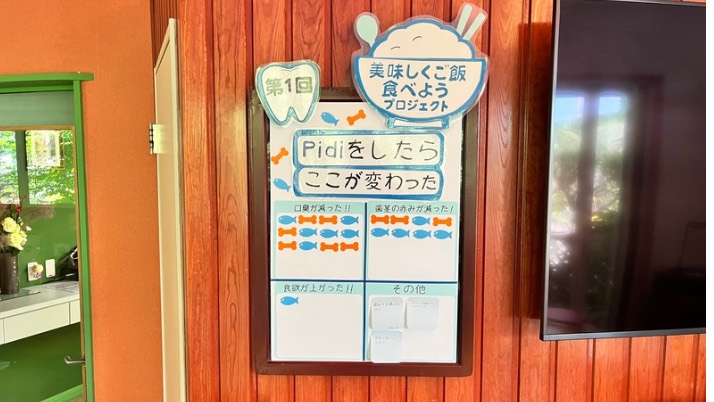 第1回
美味しくご飯
食べよう
プロジェクト
Pidiをしたら
ここが変わった
口臭が減った!!
歯茎の赤みが減った!
食欲が上がった!!
その他